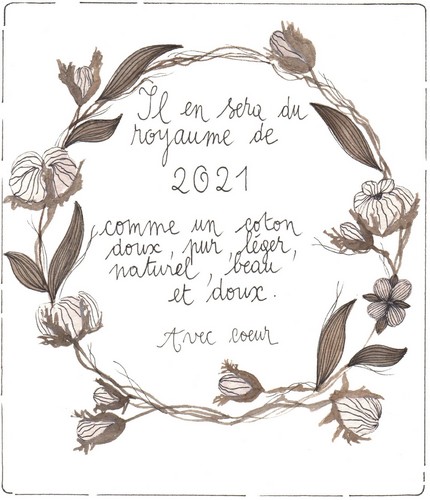 Il en sera du
royaume de
2021
comme un coton
doux, pur, léger,
naturel, beau
et doux.
Avec coeur